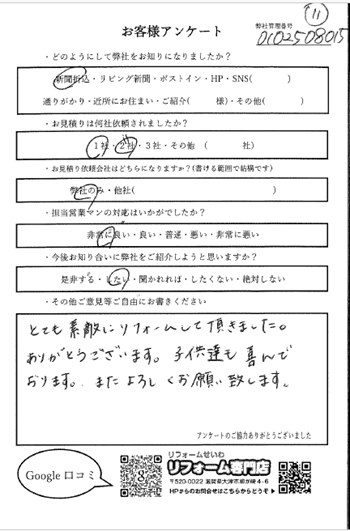 11
お客様アンケート
弊社管理番号
0102508015
・どのようにして弊社をお知りになりましたか？
新聞折込・リビング新聞・ポストイン・HP・SNS(　　　)
通りがかり・近所にお住まい・ご紹介(　　　様)・その他(　　　)
・お見積りは何社依頼されましたか？
1社・2社・3社・その他 (　　　社)
・お見積り依頼会社はどちらになりますか？(書ける範囲で結構です)
弊社のみ・他社(　　　)
・担当営業マンの対応はいかがでしたか？
非常に良い・良い・普通・悪い・非常に悪い
・今後お知り合いに弊社をご紹介しようと思いますか？
是非する・したい・聞かれれば・したくない・絶対しない
・その他ご意見等ご自由にお書きください
とても素敵にリフォームして頂きました。
ありがとうございます。子供達も喜んで
おります。またよろしくお願い致します。
アンケートのご協力ありがとうございました
Google 口コミ
リフォームせいわ
リフォーム専門店
〒520-0022 滋賀県大津市柳が崎4-6
HPからのお問合せはこちらからどうぞ